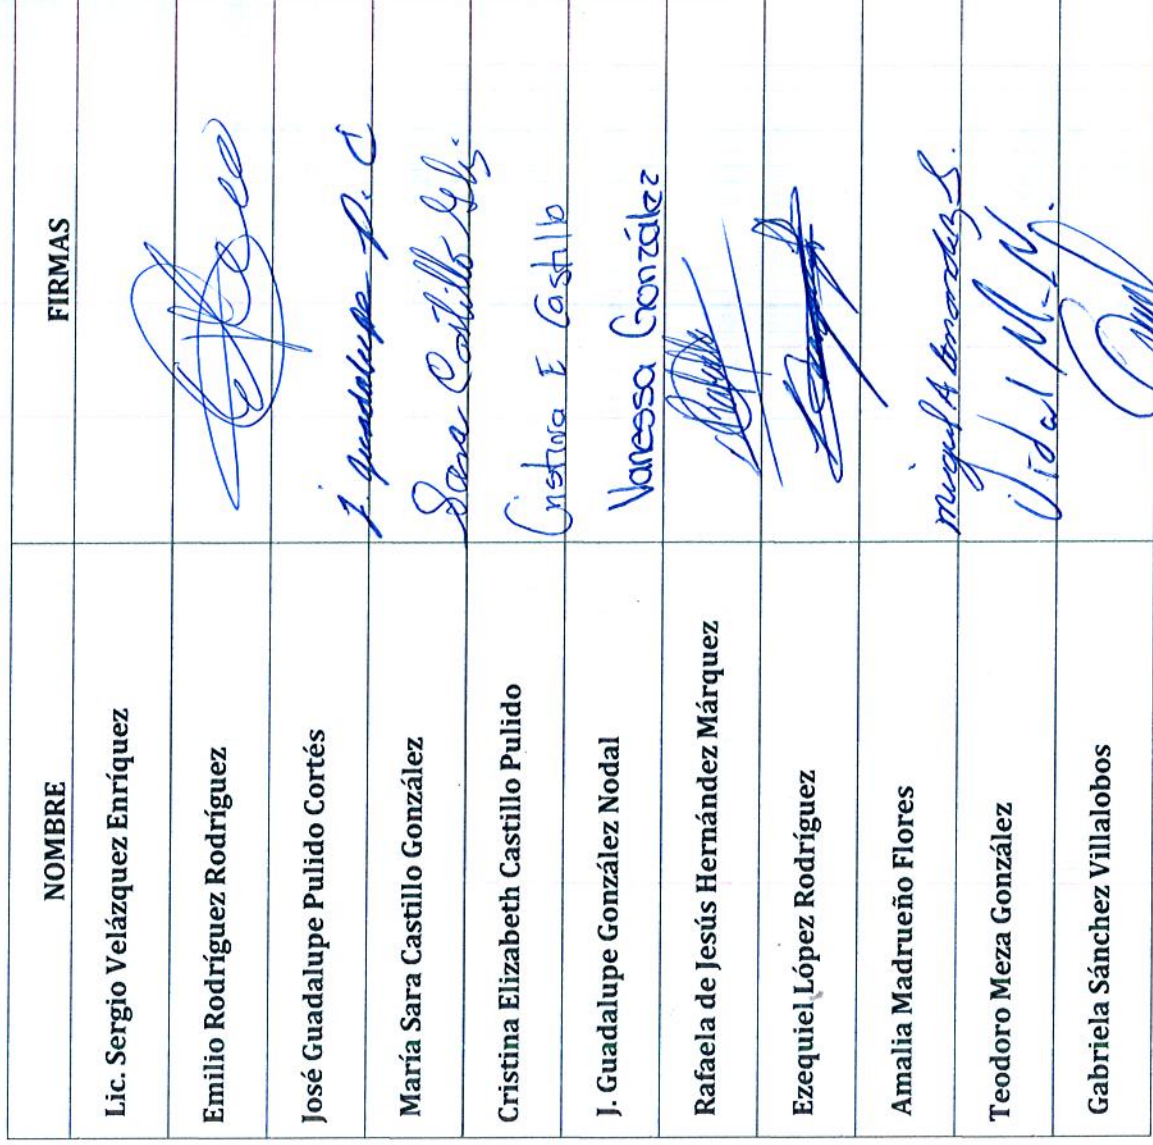 NOMBRE FIRMAS
Lic. Sergio Velázquez Enríquez
Emilio Rodríguez Rodríguez
José Guadalupe Pulido Cortés J. Guadalupe P. C
María Sara Castillo González Sara Castillo Glz.
Cristina Elizabeth Castillo Pulido Cristina E Castillo
J. Guadalupe González Nodal Vanessa González
Rafaela de Jesús Hernández Márquez
Ezequiel López Rodríguez
Amalia Madrueño Flores Miguel A
Teodoro Meza González Vidal M. N.
Gabriela Sánchez Villalobos